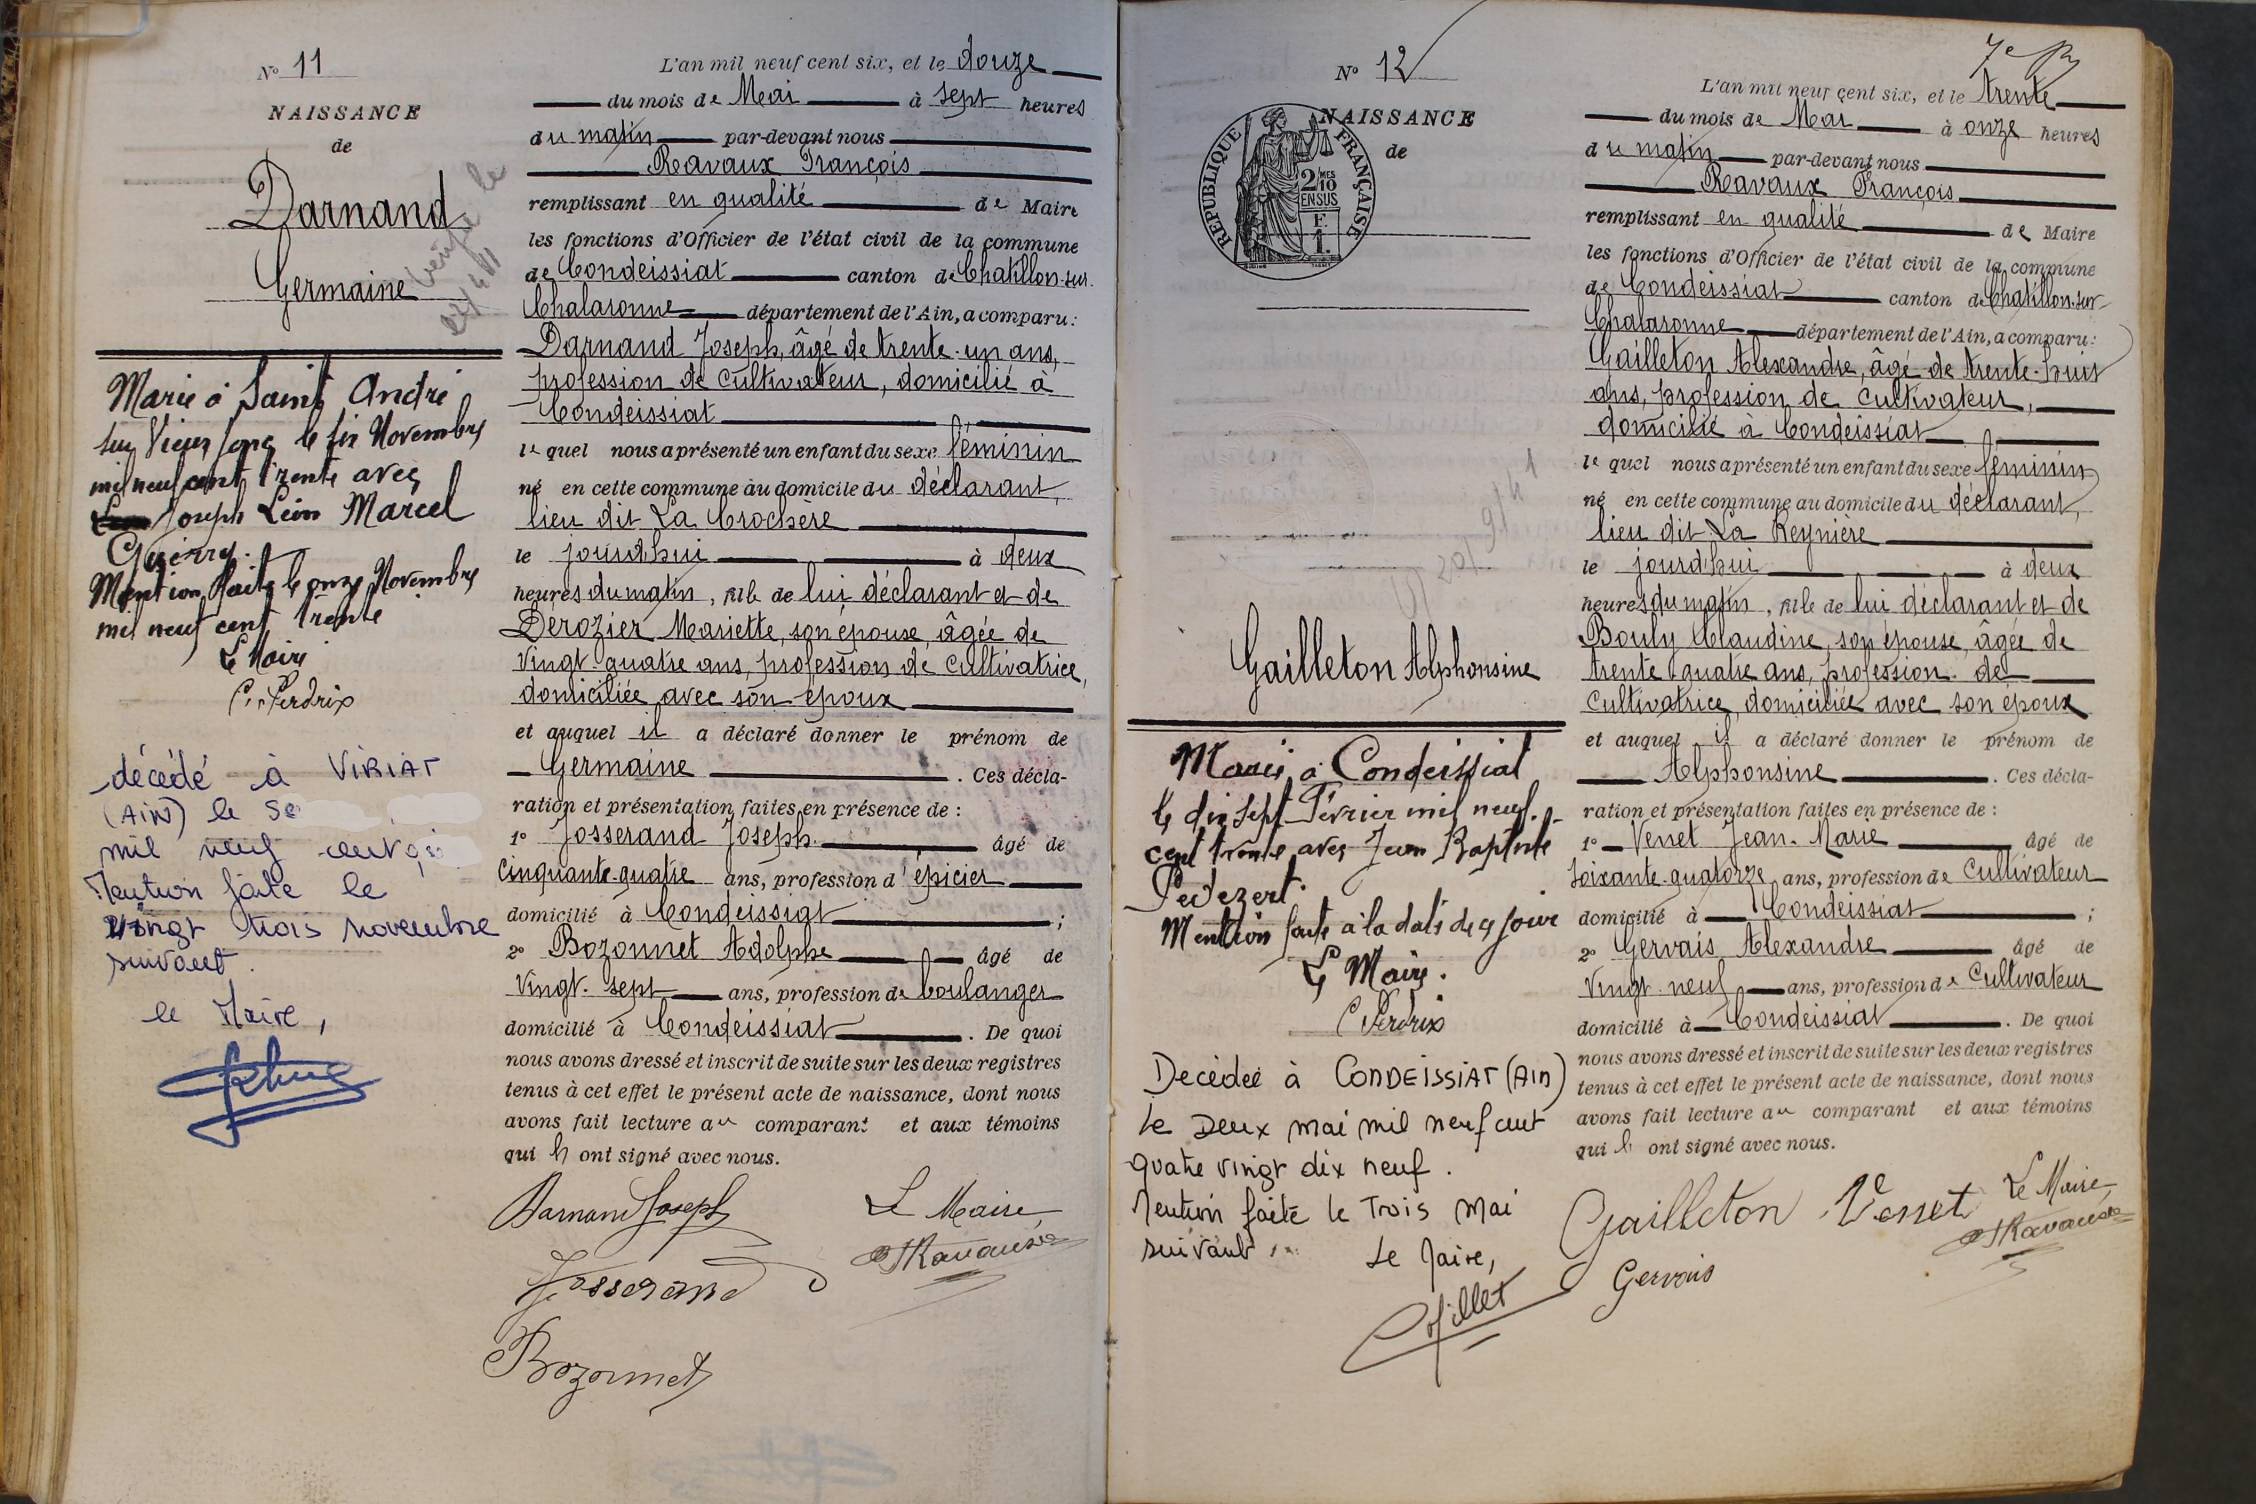 N° 11
NAISSANCE
de
Darnand
Germaine
Marié à Saint André
sur Vieux Jonc le six Novembre
mil neuf cent trente avec
Joseph Léon Marcel
Guérry.
Mention faite le onze Novembre
mil neuf cent trente
Le Maire
C. Perdrix
décédé à VIRIAT
(AIN) le Se
mil neuf cent
Mention faite le
vingt trois novembre
suivant.
le Maire,
L'an mil neuf cent six, et le douze
du mois de Mai à sept heures
du matin par-devant nous
Ravaux François
remplissant en qualité de Maire
les fonctions d'Officier de l'état civil de la commune
de Condeissiat canton de Chatillon-sur-
Chalaronne département de l'Ain, a comparu:
Darnand Joseph, âgé de trente-un ans,
profession de cultivateur, domicilié à
Condeissiat
lequel nous a présenté un enfant du sexe féminin
né en cette commune au domicile du déclarant,
lieu dit La Crochère
le jourdhui à deux
heures du matin, fille de lui déclarant et de
Dérozier Mariette, son épouse, âgée de
vingt-quatre ans, profession de cultivatrice,
domiciliée avec son époux
et auquel il a déclaré donner le prénom de
Germaine. Ces décla-
ration et présentation faites en présence de:
1° Josserand Joseph âgé de
cinquante-quatre ans, profession d'épicier
domicilié à Condeissiat;
2° Bozonnet Adolphe âgé de
vingt-sept ans, profession de boulanger
domicilié à Condeissiat. De quoi
nous avons dressé et inscrit de suite sur les deux registres
tenus à cet effet le présent acte de naissance, dont nous
avons fait lecture au comparant et aux témoins
qui ont signé avec nous.
Darnand Joseph
Le Maire,
Ravaux
Josserand
Bozonnet
N° 12
NAISSANCE
de
REPUBLIQUE FRANÇAISE
2/10 MES
EN SUS
F.
1.
Gailleton Alphonsine
Marié à Condeissiat
le dix sept Février mil neuf
cent trente avec Jean Baptiste
Pedezert.
Mention faite à la date de ce jour
Le Maire.
C Perdrix
Decédée à CONDEISSIAT (AIN)
Le Deux mai mil neuf cent
quatre vingt dix neuf.
Mention faite le Trois Mai
suivant.
Le Maire,
7e
L'an mil neuf cent six, et le trente
du mois de Mai à onze heures
du matin par-devant nous
Ravaux François
remplissant en qualité de Maire
les fonctions d'Officier de l'état civil de la commune
de Condeissiat canton de Chatillon-sur-
Chalaronne département de l'Ain, a comparu:
Gailleton Alexandre, âgé de trente-huit
ans, profession de cultivateur,
domicilié à Condeissiat
lequel nous a présenté un enfant du sexe féminin
né en cette commune au domicile du déclarant,
lieu dit La Reynière
le jourd'hui à deux
heures du matin, fille de lui déclarant et de
Bouly Claudine, son épouse, âgée de
trente-quatre ans, profession de
cultivatrice, domiciliée avec son époux
et auquel il a déclaré donner le prénom de
Alphonsine. Ces décla-
ration et présentation faites en présence de:
1° Venet Jean-Marie âgé de
soixante-quatorze ans, profession de cultivateur
domicilié à Condeissiat;
2° Gervais Alexandre âgé de
vingt-neuf ans, profession de cultivateur
domicilié à Condeissiat. De quoi
nous avons dressé et inscrit de suite sur les deux registres
tenus à cet effet le présent acte de naissance, dont nous
avons fait lecture au comparant et aux témoins
qui ont signé avec nous.
Gailleton Venet
Le Maire,
Ravaux
Gervais